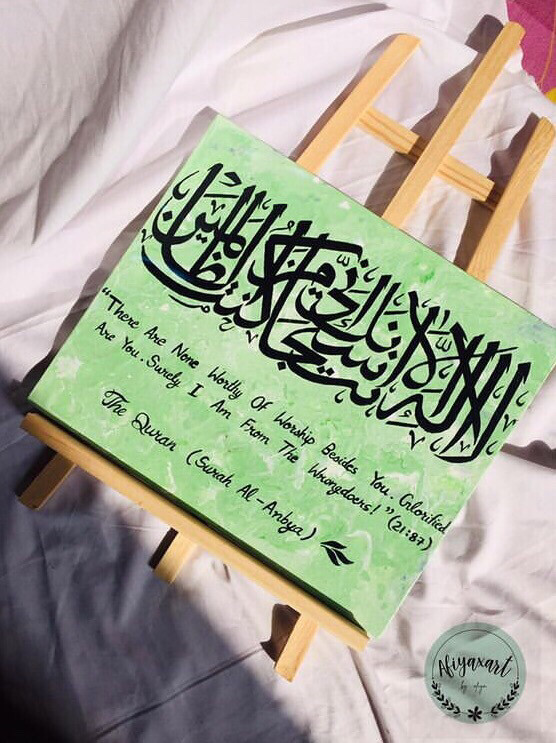 لا إله إلا أنت سبحانك إني كنت من الظالمين
“There Are None Worthy Of Worship Besides You. Glorified
Are You. Surely I Am From The Wrongdoers!” (21:87)
The Quran (Surah Al-Anbya)
Afiyaxart
by afiya